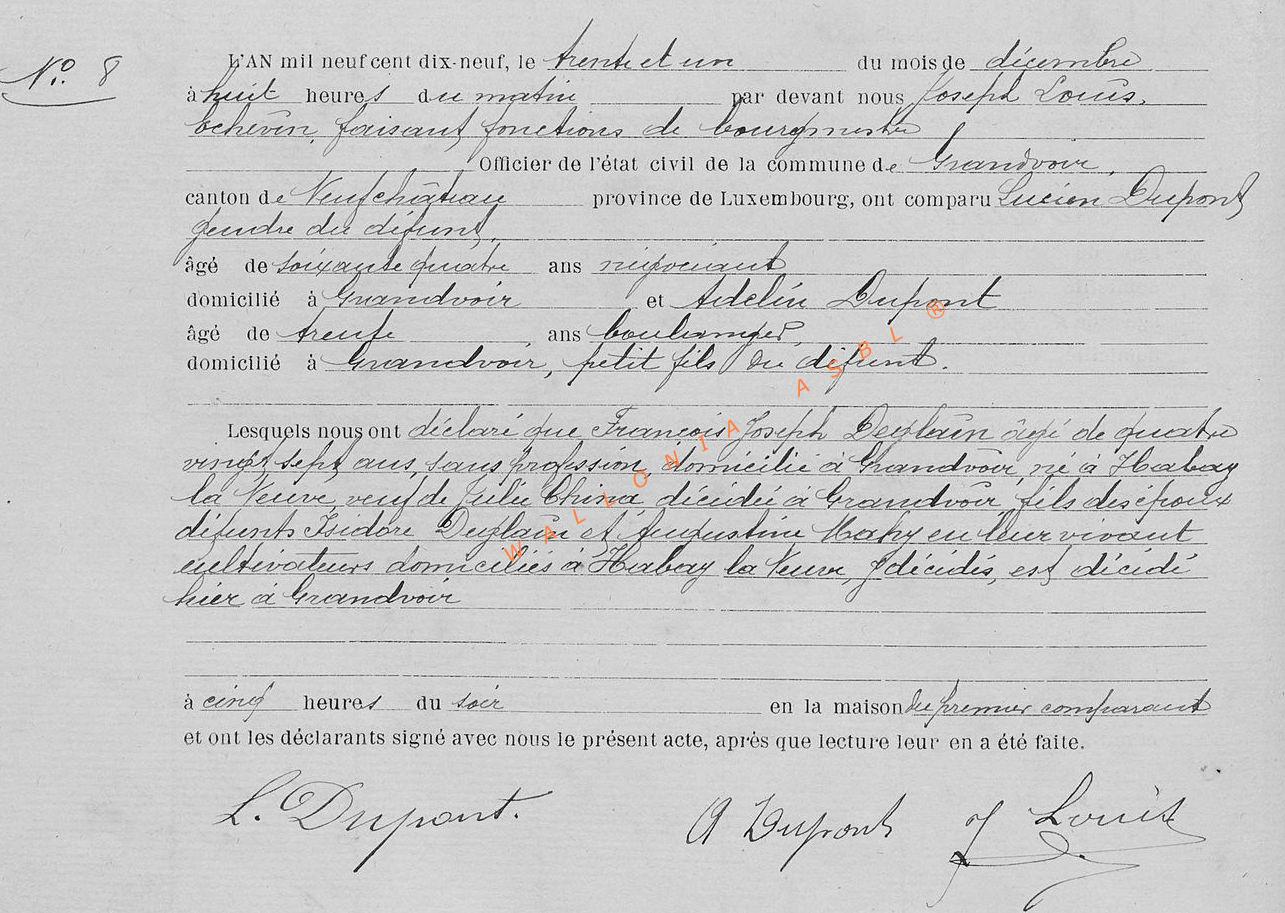 N° 8
L'AN mil neuf cent dix-neuf, le trente et un du mois de décembre
à huit heures du matin par devant nous Joseph Louis,
échevin, faisant fonctions de bourgmestre
Officier de l'état civil de la commune de Grandvoir,
canton de Neufchâteau province de Luxembourg, ont comparu Lucien Dupont
gendre du défunt,
âgé de soixante quatre ans négociant
domicilié à Grandvoir et Adelin Dupont
âgé de trente ans boulanger,
domicilié à Grandvoir, petit fils du défunt.
Lesquels nous ont déclaré que François Joseph Deglain âgé de quatre
vingt sept ans, sans profession, domicilié à Grandvoir, né à Habay
la Neuve, veuf de Julie China décédée à Grandvoir, fils des époux
défunts Isidore Deglain et Augustine Mahy en leur vivant
cultivateurs domiciliés à Habay la Neuve, y décédés, est décédé
hier à Grandvoir
à cinq heures du soir en la maison du premier comparant
et ont les déclarants signé avec nous le présent acte, après que lecture leur en a été faite.
L. Dupont. A Dupont J Louis
WALLONIA ASBL ®